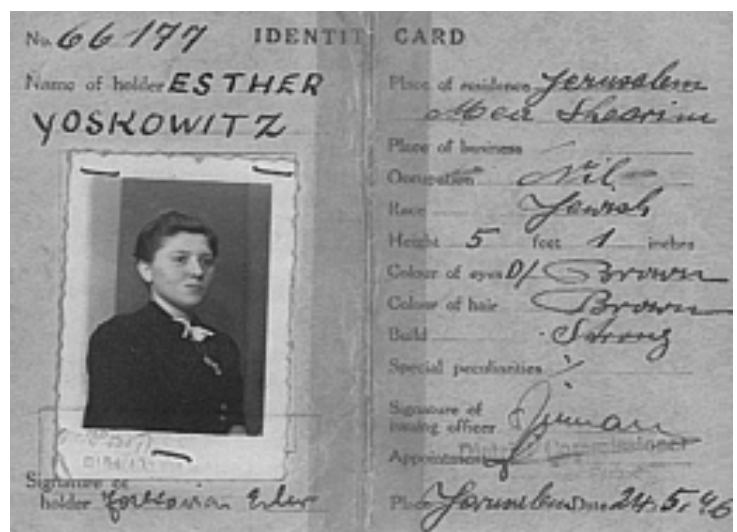 No. 66177 IDENTITY CARD
Name of holder ESTHER
YOSKOWITZ
Signature of
holder
Place of residence Jerusalem
Mea Shearim
Place of business /
Occupation Nil
Race Jewish
Height 5 feet 1 inches
Colour of eyes D/ Brown
Colour of hair Brown
Build Strong
Special peculiarities /
Signature of
issuing officer
Appointment District Commissioner
Place Jerusalem Date 24.5.46